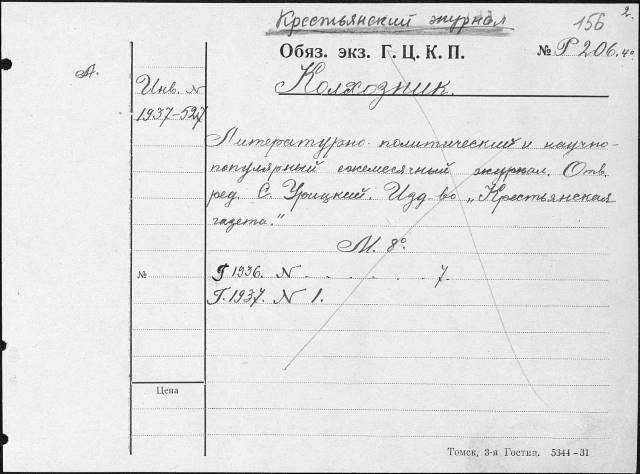 Крестьянский журнал
156
2.
Обяз. экз. Г. Ц. К. П.
№ Р 206.40
А.
Инв. N
1937-527
Колхозник.
Литературно-политический и научно-
популярный ежемесячный журнал. Отв.
ред. С. Урицкий. Изд-во „Крестьянская
газета."
М. 8°.
№
Г 1936. N . . . . . . 7.
Г. 1937. N 1.
Цена
Томск, 3-я Гостип. 5344-31